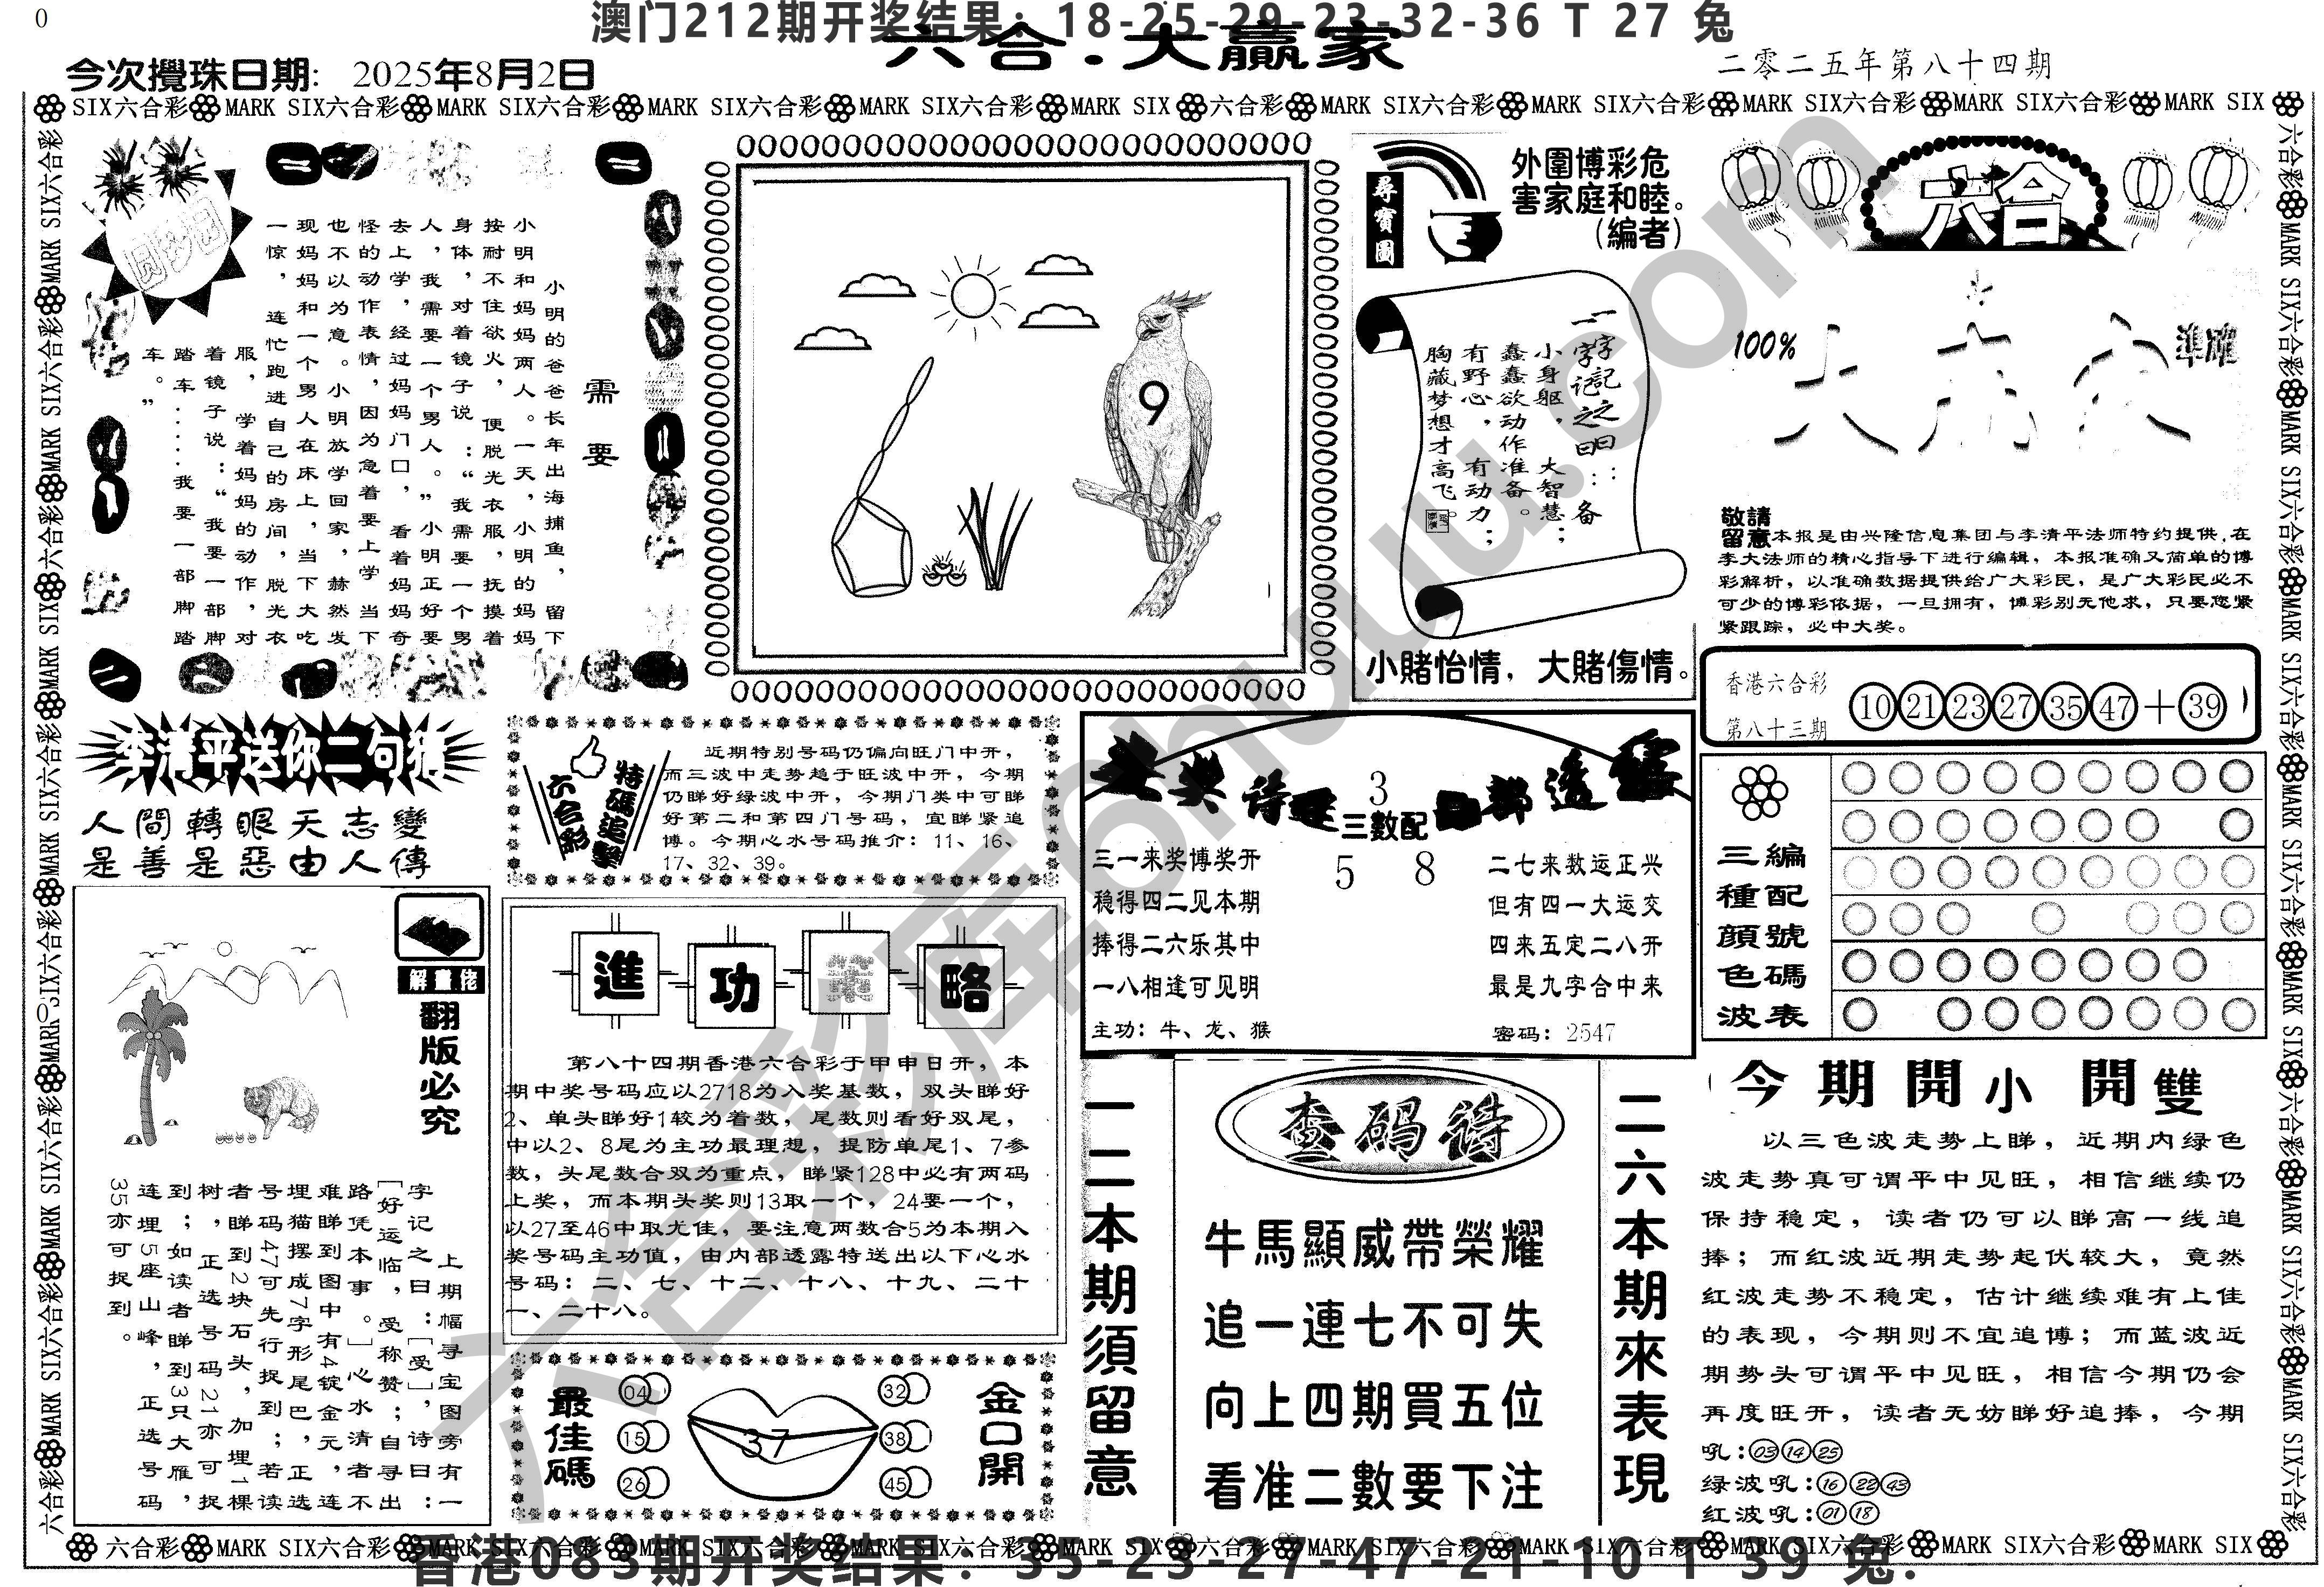 0
澳门212期开奖结果：18-25-29-23-32-36 T 27 兔
六合.大赢家
今次攪珠日期: 2025年8月2日
二零二五年第八十四期
SIX六合彩 MARK SIX六合彩 MARK SIX六合彩 MARK SIX六合彩 MARK SIX六合彩 MARK SIX 六合彩 MARK SIX六合彩 MARK SIX六合彩 MARK SIX六合彩 MARK SIX六合彩 MARK SIX
需要
小明的爸爸长年出海捕鱼，留下
小明和妈妈两人。一天，小明的妈妈
按耐不住欲火，便脱光衣服，抚摸着
身体，对着镜子说：“我需要一个男
人，我需要一个男人。”小明正好要
去上学，经过妈妈门口，看着妈妈奇
怪的动作表情，因为急着要上学当下
也不以为意。小明放学回家，赫然发
现妈妈和一个男人在床上，当下大吃
一惊，连忙跑进自己的房间，脱光衣
服，学着妈妈的动作，对
着镜子说：“我要一部脚
踏车……我要一部脚踏
车。”
9
尋寶圖
外圍博彩危
害家庭和睦。
(編者)
一字記之曰：
字记之曰：备
小身躯，大智慧；
蠢蠢欲动作准备。
有野心，有动力；
胸藏梦想才高飞。
小賭怡情，大賭傷情。
六合
100%
準確
敬請
留意本报是由兴隆信息集团与李清平法师特约提供,在
李大法师的精心指导下进行编辑，本报准确又简单的博
彩解析，以准确数据提供给广大彩民，是广大彩民必不
可少的博彩依据，一旦拥有，博彩别无他求，只要您紧
紧跟踪，必中大奖。
香港六合彩
第八十三期
10 21 23 27 35 47 + 39
三種顔色波
編配號碼表
李清平送你二句猜
人間轉眼天志變
是善是惡由人傳
六合彩
特碼追擊
近期特别号码仍偏向旺门中开，
而三波中走势趋于旺波中开，今期
仍睇好绿波中开，今期门类中可睇
好第二和第四门号码，宜睇紧追
博。今期心水号码推介：11、16、
17、32、39。
3
三數配
5 8
三一来奖博奖开
稳得四二见本期
捧得二六乐其中
一八相逢可见明
主功：牛、龙、猴
二七来数运正兴
但有四一大运交
四来五定二八开
最是九字合中来
密码：2547
解畫佬
翻版必究
上期幅寻宝图旁有一
字记之曰：[受]，诗曰：
[好运临，受称赞；自寻出
路凭本事。]心水清者不
难睇到图中有4锭金元，连
埋猫摆成7字形尾巴，正选
号码47可先行捉到；若读
者睇到2块石头，加埋1棵
树，正选号码21亦可捉
到；如读者睇到3只大雁，
连埋5座山峰，正选号码
35亦可捉到。
進功策略
第八十四期香港六合彩于甲申日开，本
期中奖号码应以2718为入奖基数，双头睇好
2、单头睇好1较为着数，尾数则看好双尾，
中以2、8尾为主功最理想，提防单尾1、7参
数，头尾数合双为重点，睇紧128中必有两码
上奖，而本期头奖则13取一个，24要一个，
以27至46中取尤佳，要注意两数合5为本期入
奖号码主功值，由内部透露特送出以下心水
号码：二、七、十二、十八、十九、二十
一、二十八。
最佳碼
04
15
26
37
32
38
45
金口開
一二本期須留意
查码诗
牛馬顯威帶榮耀
追一連七不可失
向上四期買五位
看准二數要下注
二六本期來表現
今期開小開雙
以三色波走势上睇，近期内绿色
波走势真可谓平中见旺，相信继续仍
保持稳定，读者仍可以睇高一线追
捧；而红波近期走势起伏较大，竟然
红波走势不稳定，估计继续难有上佳
的表现，今期则不宜追博；而蓝波近
期势头可谓平中见旺，相信今期仍会
再度旺开，读者无妨睇好追捧，今期
吼：03 14 25
绿波吼：16 22 43
红波吼：01 18
六合彩 MARK SIX六合彩 MARK SIX六合彩 MARK SIX六合彩 MARK SIX六合彩 MARK SIX 六合彩 MARK SIX六合彩 MARK SIX六合彩 MARK SIX六合彩 MARK SIX六合彩 MARK SIX
香港083期开奖结果：35-23-27-47-21-10 T 39 兔.
六合彩库ohuu.com